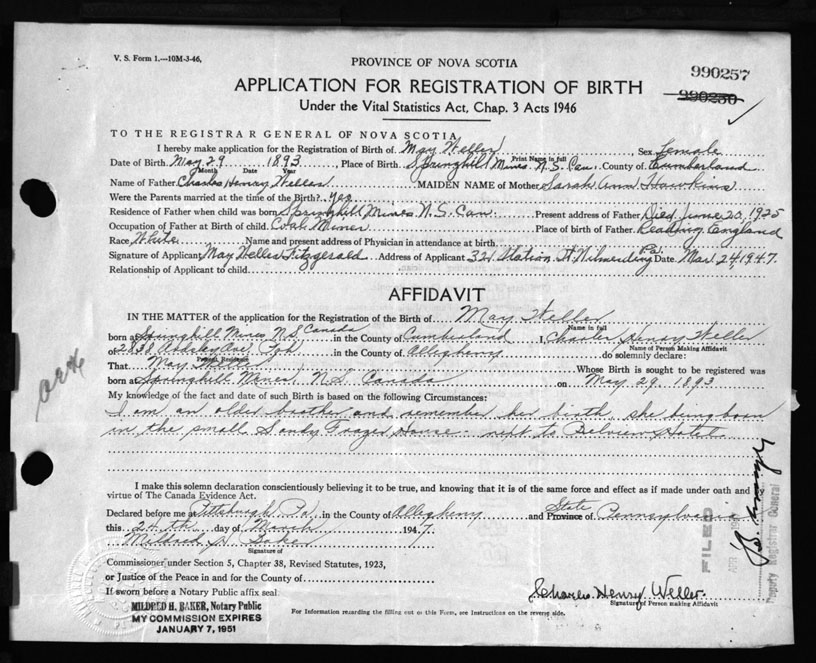 V. S. Form 1.—10M-3-46,
PROVINCE OF NOVA SCOTIA
990257
990230
APPLICATION FOR REGISTRATION OF BIRTH
Under the Vital Statistics Act, Chap. 3 Acts 1946
TO THE REGISTRAR GENERAL OF NOVA SCOTIA
I hereby make application for the Registration of Birth of May Weller Sex female
Print Name in full
Date of Birth May 29 1893, Place of Birth Springhill Mines N.S. Can, County of Cumberland
Month Date Year
Name of Father Charles Henry Weller MAIDEN NAME of Mother Sarah Ann Hawkins
Were the Parents married at the time of the Birth? Yes
Residence of Father when child was born Springhill Mines N.S. Can Present address of Father Died June 20, 1925
Occupation of Father at Birth of child Coal Miner Place of birth of Father Reading England
Race White Name and present address of Physician in attendance at birth
Signature of Applicant May Weller Fitzgerald Address of Applicant 321 Station St Wilmerding Pa. Date Mar 24, 1947.
Relationship of Applicant to child
AFFIDAVIT
IN THE MATTER of the application for the Registration of the Birth of May Weller
Name in full
born at Springhill Mines N S Canada in the County of Cumberland I, Charles Henry Weller
Name of Person Making Affidavit
of Ave, Pgh in the County of Allegheny do solemnly declare:
Present Residence
That May Weller Whose Birth is sought to be registered was
born at Springhill Mines, N.S. Canada on May 29, 1893.
My knowledge of the fact and date of such Birth is based on the following Circumstances:
I am an older brother and remember her birth, she being born
in the small Sandy Frazer House next to Belview Hotel
I make this solemn declaration conscientiously believing it to be true, and knowing that it is of the same force and effect as if made under oath and
virtue of The Canada Evidence Act.
Declared before me at Pittsburgh Pa in the County of Allegheny and State Province of Pennsylvania
this 24th day of March 1947
Mildred H Baker
Signature of
Commissioner under Section 5, Chapter 38, Revised Statutes, 1923,
or Justice of the Peace in and for the County of
If sworn before a Notary Public affix seal
Charles Henry Weller
Signature of Person making Affidavit
MILDRED H. BAKER, Notary Public
MY COMMISSION EXPIRES
JANUARY 7, 1951
For Information regarding the filling out of this Form, see Instructions on the reverse side.
FILED
Deputy Registrar General